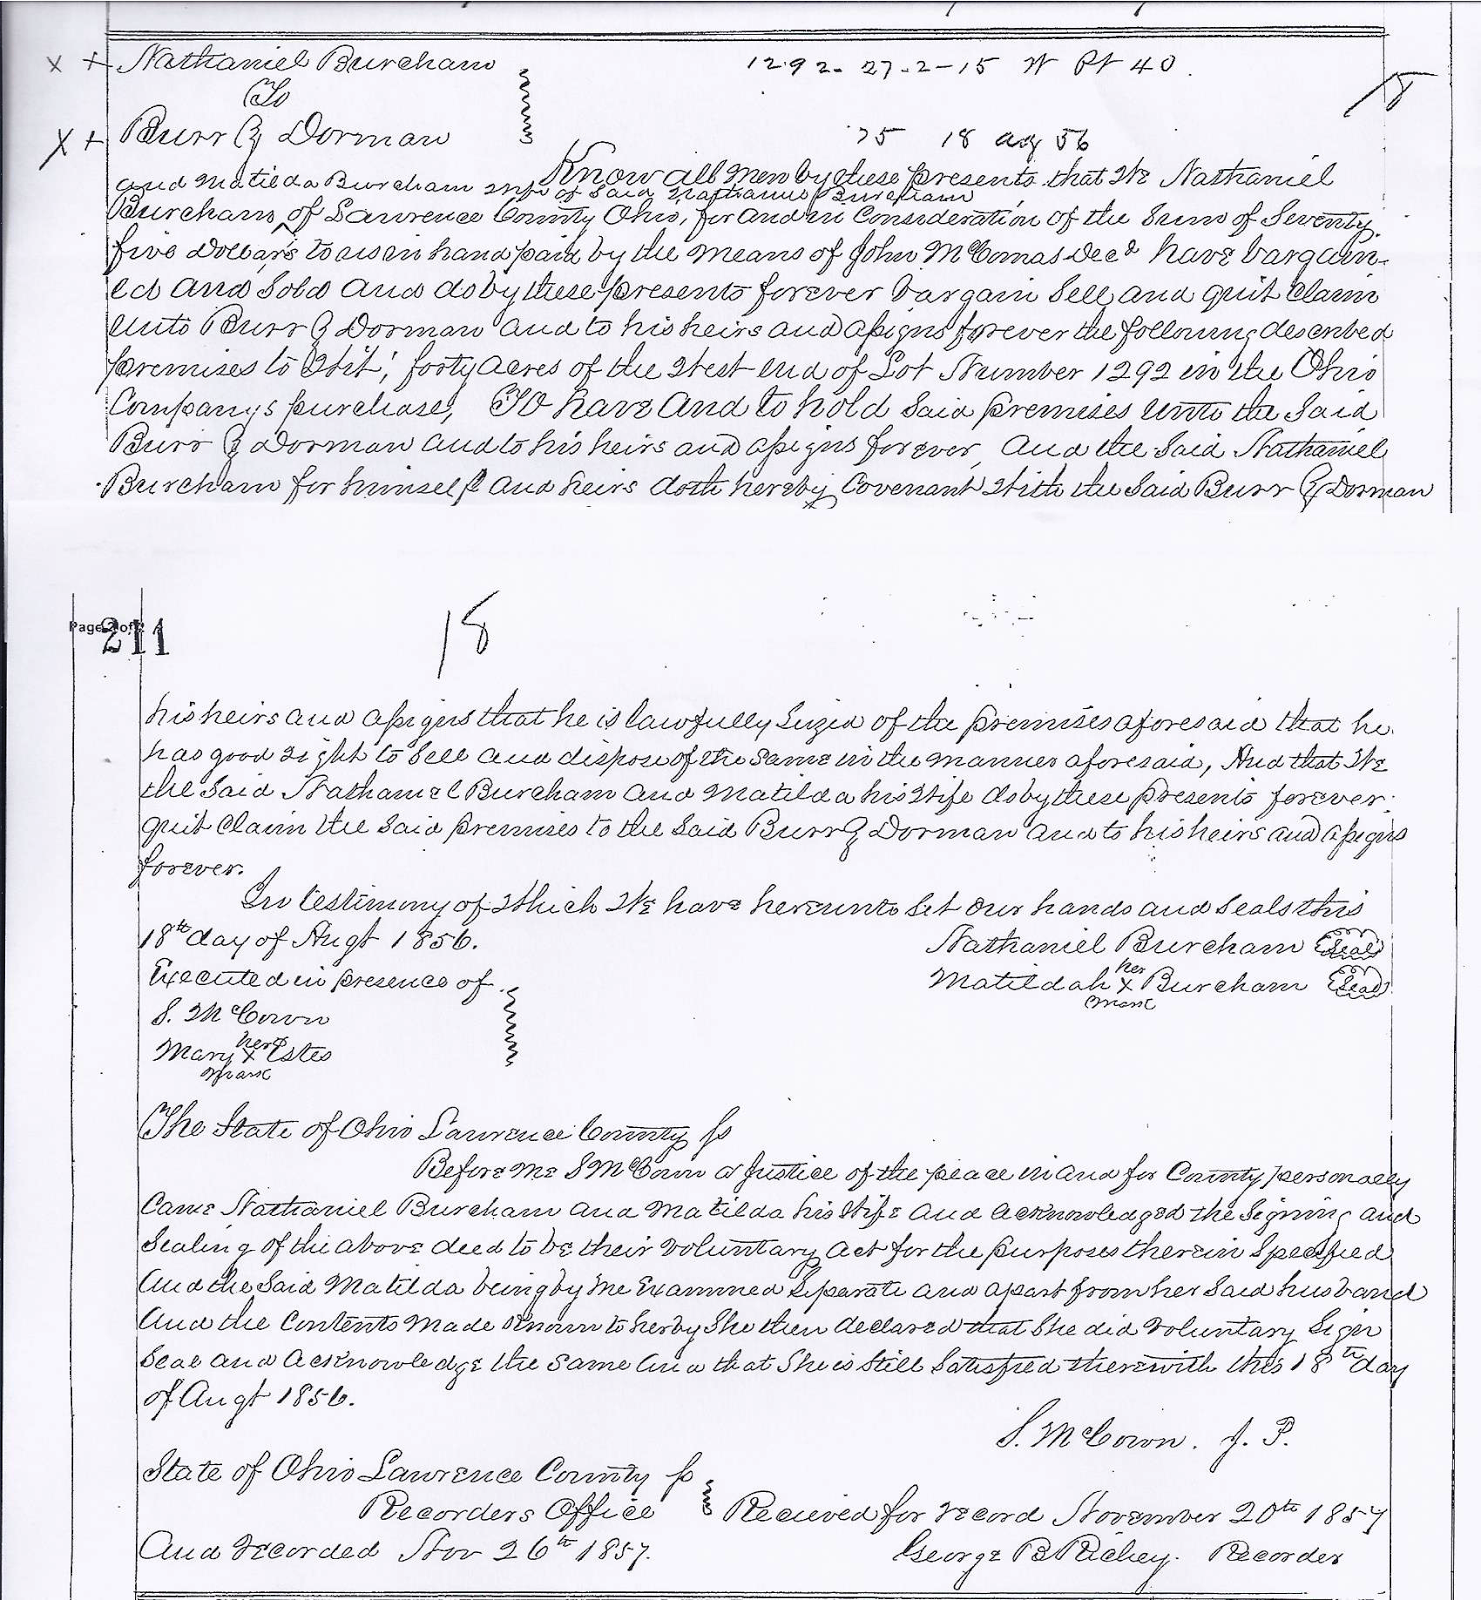 x + Nathaniel Burcham 1292- 27-2-15 W Pt 40.
To 18
x + Burr Q Dorman 75 18 aug 56
Know all Men by these presents that We Nathaniel
and Matilda Burcham wife of Said Nathaniel Burcham
Burcham, ^ of Lawrence County Ohio, for and in Consideration of the Sum of Seventy
five Dollars to us in hand paid by the means of John McComas Decd have bargain-
ed and Sold and do by these presents forever bargain Sell and quit Claim
unto Burr Q Dorman and to his heirs and assigns forever the following described
premises to Wit; forty acres of the West end of Lot Number 1292 in the Ohio
Companys purchase, To have and to hold Said premises unto the Said
Burr Q Dorman and to his heirs and assigns forever, And the Said Nathaniel
Burcham for himself and heirs doth hereby Covenant With the Said Burr Q Dorman
Page 211
18
his heirs and assigns that he is lawfully Siezed of the premises aforesaid that he
has good right to Sell and dispose of the Same in the manner aforesaid, And that We
the Said Nathaniel Burcham and Matilda his Wife do by these presents forever
quit Claim the Said premises to the Said Burr Q Dorman and to his heirs and assigns
forever.
In testimony of Which We have hereunto Set our hands and Seals this
18th day of Augt 1856. Nathaniel Burcham Seal
Executed in presence of Matildah her x mark Burcham Seal
S. McCown
Mary her x mark Estes
The State of Ohio Lawrence County ss
Before Me S McCown a Justice of the peace in and for County personally
Came Nathaniel Burcham and Matilda his Wife and acknowledged the Signing and
Sealing of the above deed to be their Voluntary act for the purposes therein Specified
And the Said Matilda being by Me Examined Separate and apart from her Said husband
And the Contents Made Known to her by She then declared that She did Voluntary Sign
Seal and acknowledge the Same and that She is Still Satisfied therewith this 18th day
of Augt 1856.
S. McCown. J. P.
State of Ohio Lawrence County ss
Recorders Office Recieved for record November 20th 1857
And recorded Nov 26th 1857. George B Richey. Recorder